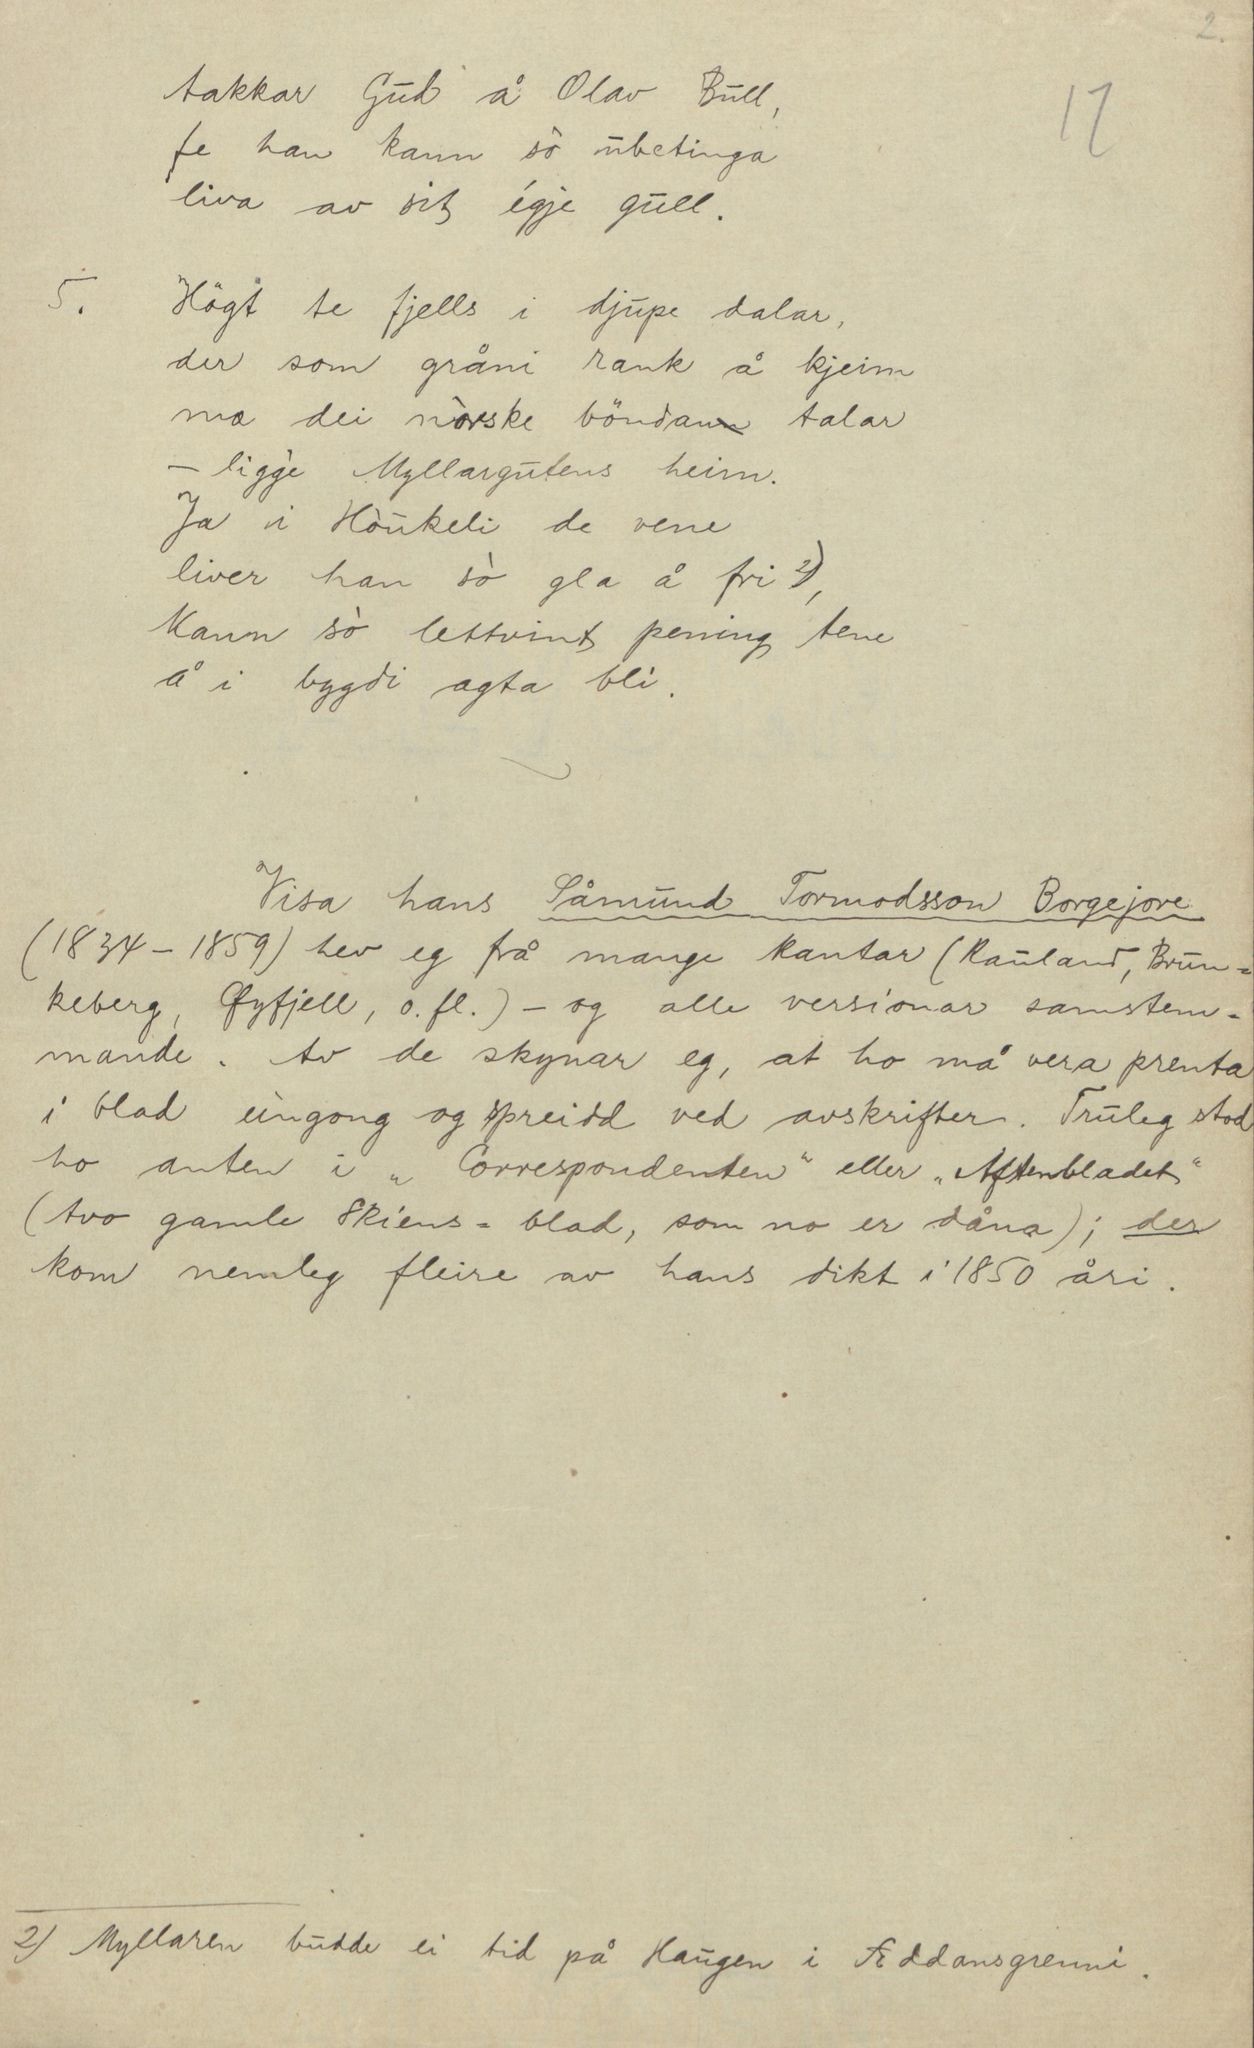 2.
17
takkar Gud å Olav Bull,
fe han kann sò ubetinga
liva av sit égje gull.
5. Högt te fjells i djupe dalar,
der som gråni rank å kjeim
mæ dei nòrske böndan talar
– ligge Myllargutens heim.
Ja i Hòukeli de vene
liver han sò gla å fri 2),
kann sò lettvint pening tene
å i bygdi agta bli.
Visa hans Såmund Tormodsson Borgejore
(1834 – 1859) hev eg frå mange kantar (Rauland, Brun-
keberg, Øyfjell, o. fl.) – og alle versionar samstem-
mande. Av de skynar eg, at ho må vera prenta
i blad eingong og spreidd ved avskrifter. Truleg stod
ho anten i „Correspondenten“ eller „Aftenbladet“
(tvo gamle Skiens-blad, som no er dåna); der
kom nemleg fleire av hans dikt i 1850 åri.
2) Myllaren budde ei tid på Haugen i Æddansgrenni.